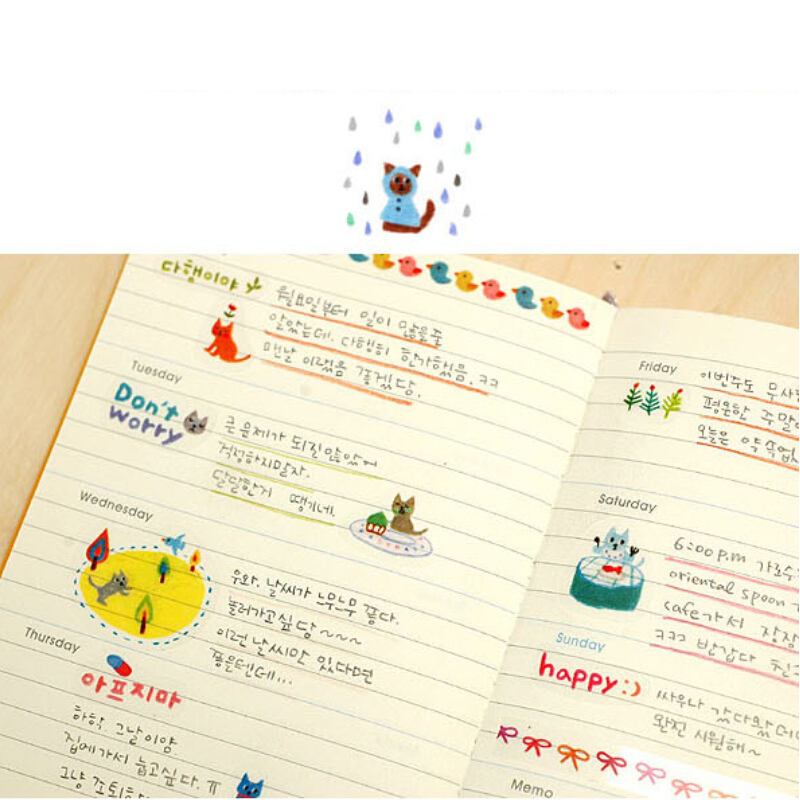 다행이야
월요일부터 일이 많을줄
알았는데. 다행히 한가했음. ㅋㅋ
맨날 이랬음 좋겠당.
Tuesday
Don't
worry
큰 문제가 되진 않았어
걱정하지말자.
달달한게 땡기네.
Wednesday
우와, 날씨가 느무느무 좋다.
놀러가고싶당~~~
이런 날씨만 있다면
좋을텐데...
Thursday
아프지마
하핫, 그날이얌
집에가서 눕고싶다. ㅠ
그냥
Friday
이번주도 무사
평온한 주말
오늘은 약속없
Saturday
6:00 p.m 가로수
oriental spoon
cafe가서
ㅋㅋㅋ 반갑다 친
Sunday
happy :)
싸우나 갔다왔
완전 시원해~
Memo